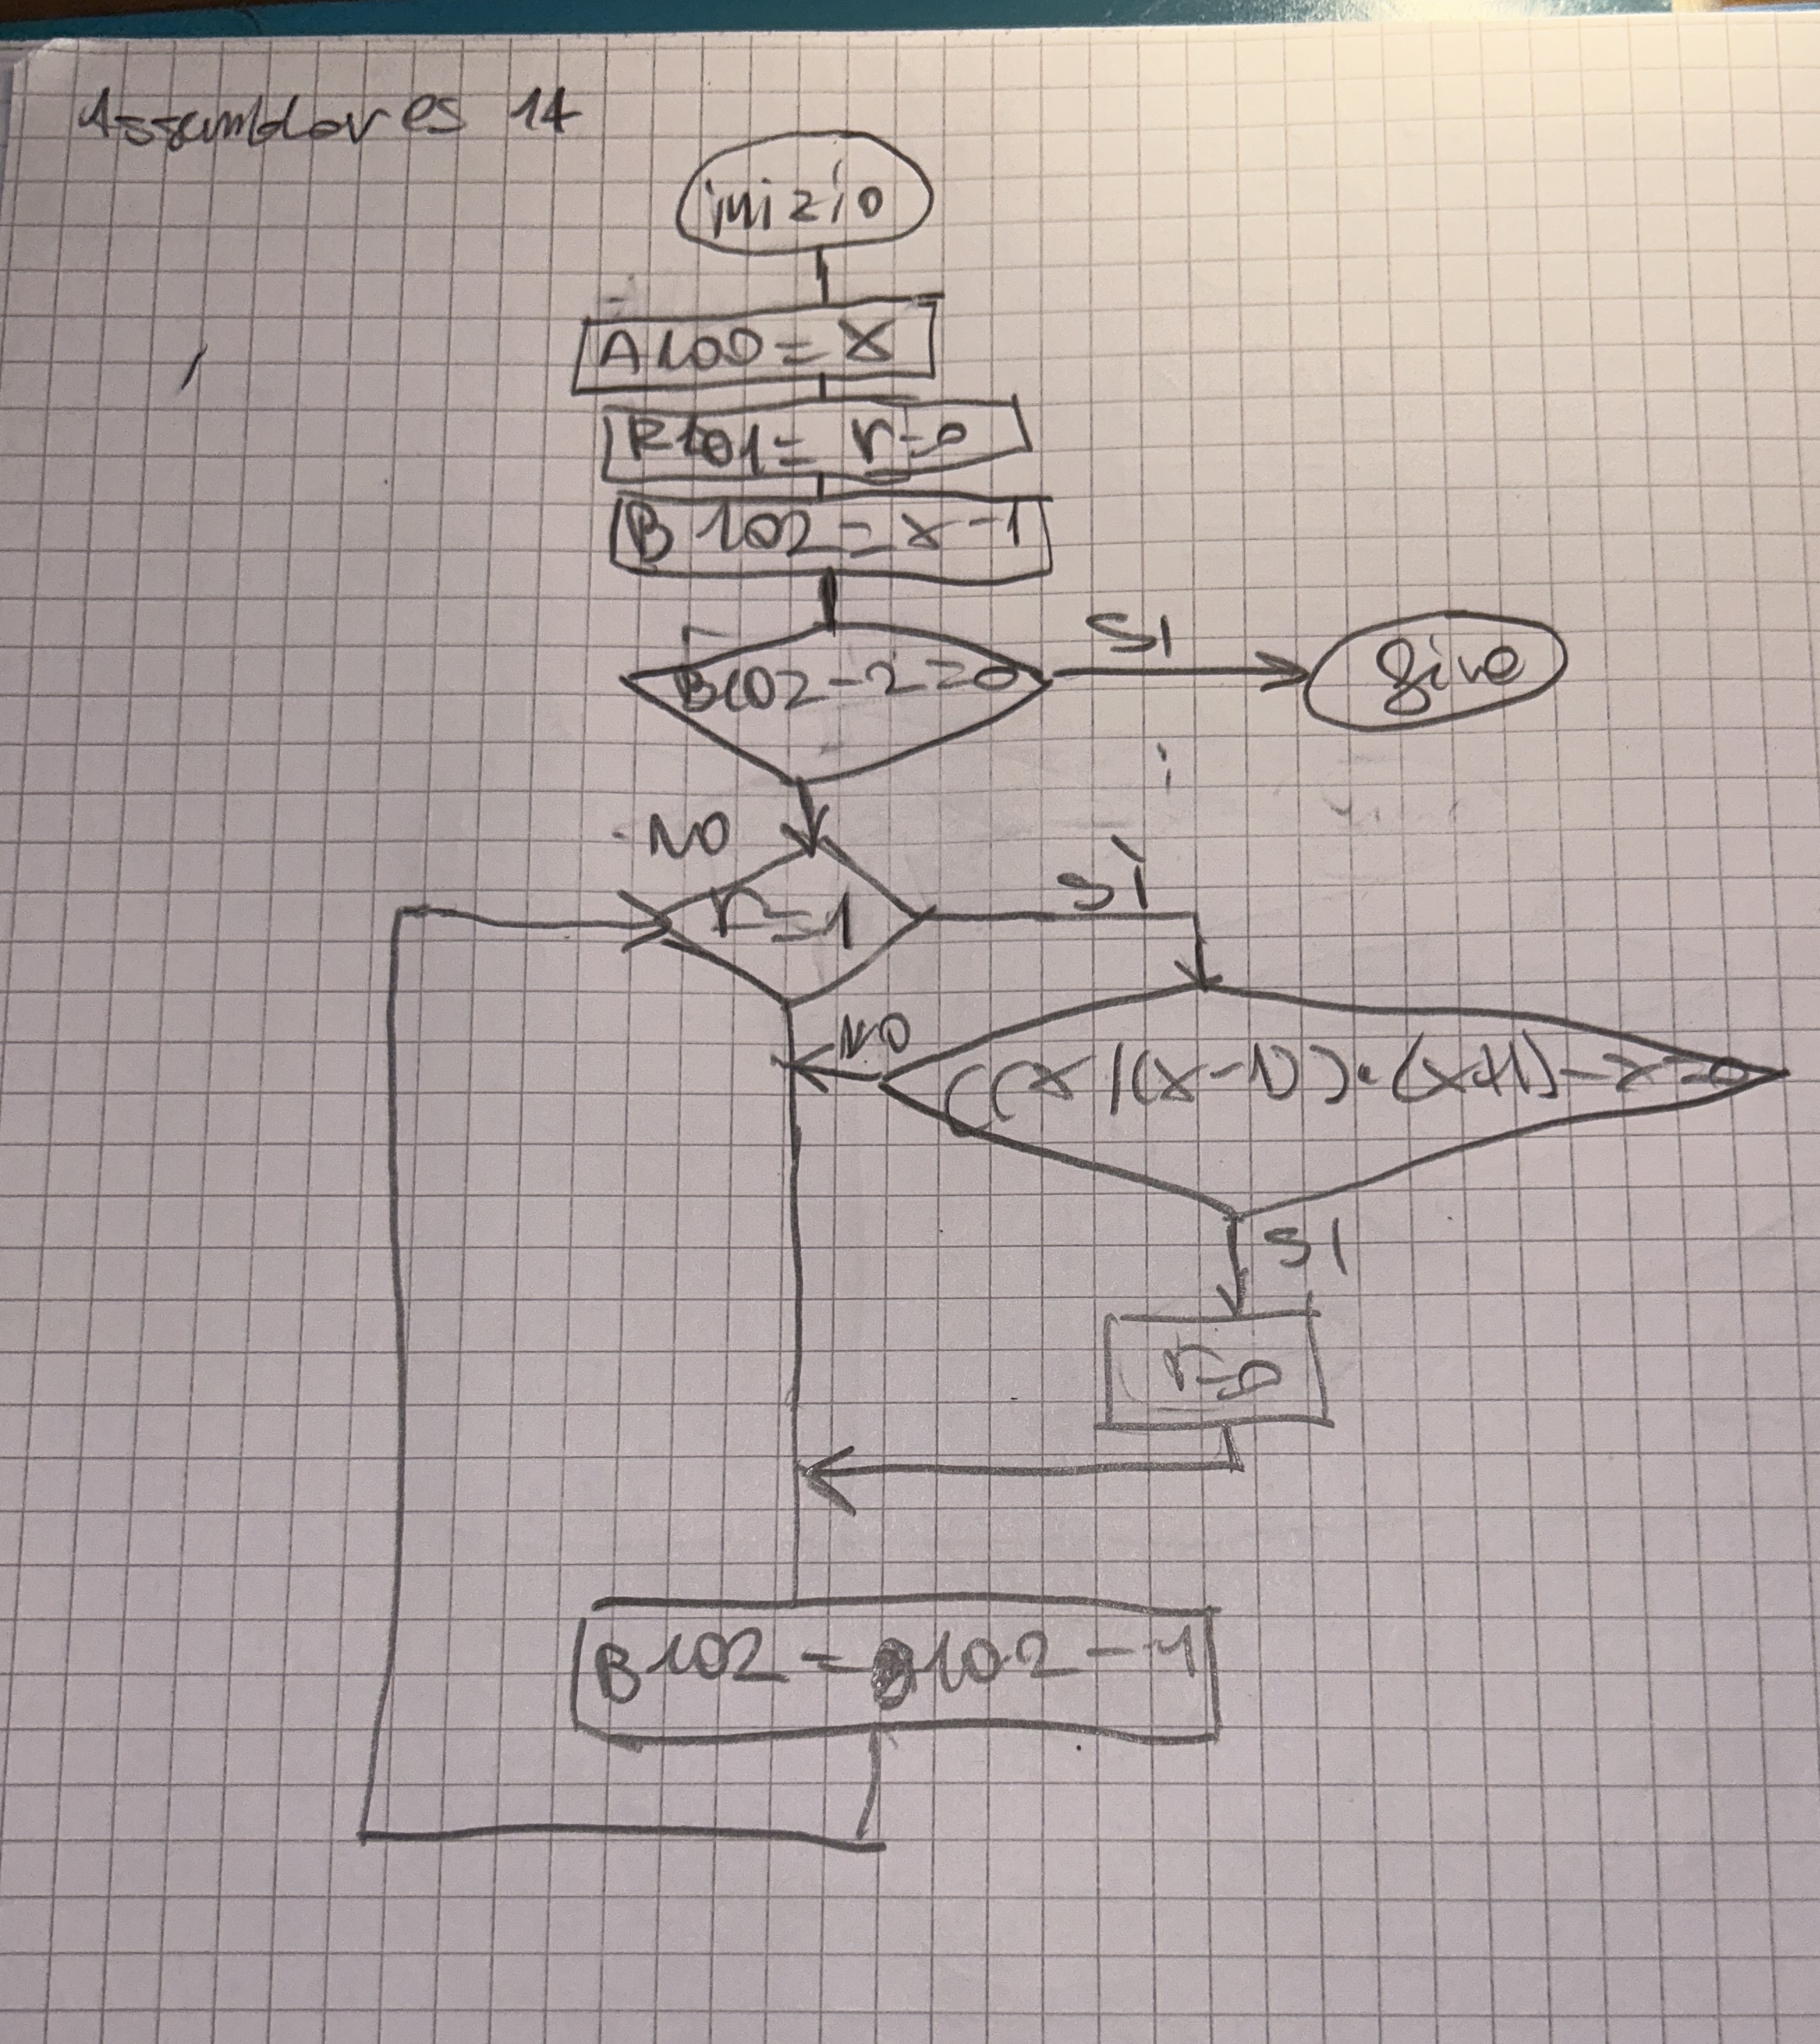 Assembler es 14
inizio
A100 = x
R101 = r=0
B 102 = x-1
B102-2=0
SI
fine
NO
r=1
SÌ
NO
((x/(x-1))•(x+1)-x=0
SI
r=0
B102 = B102-1